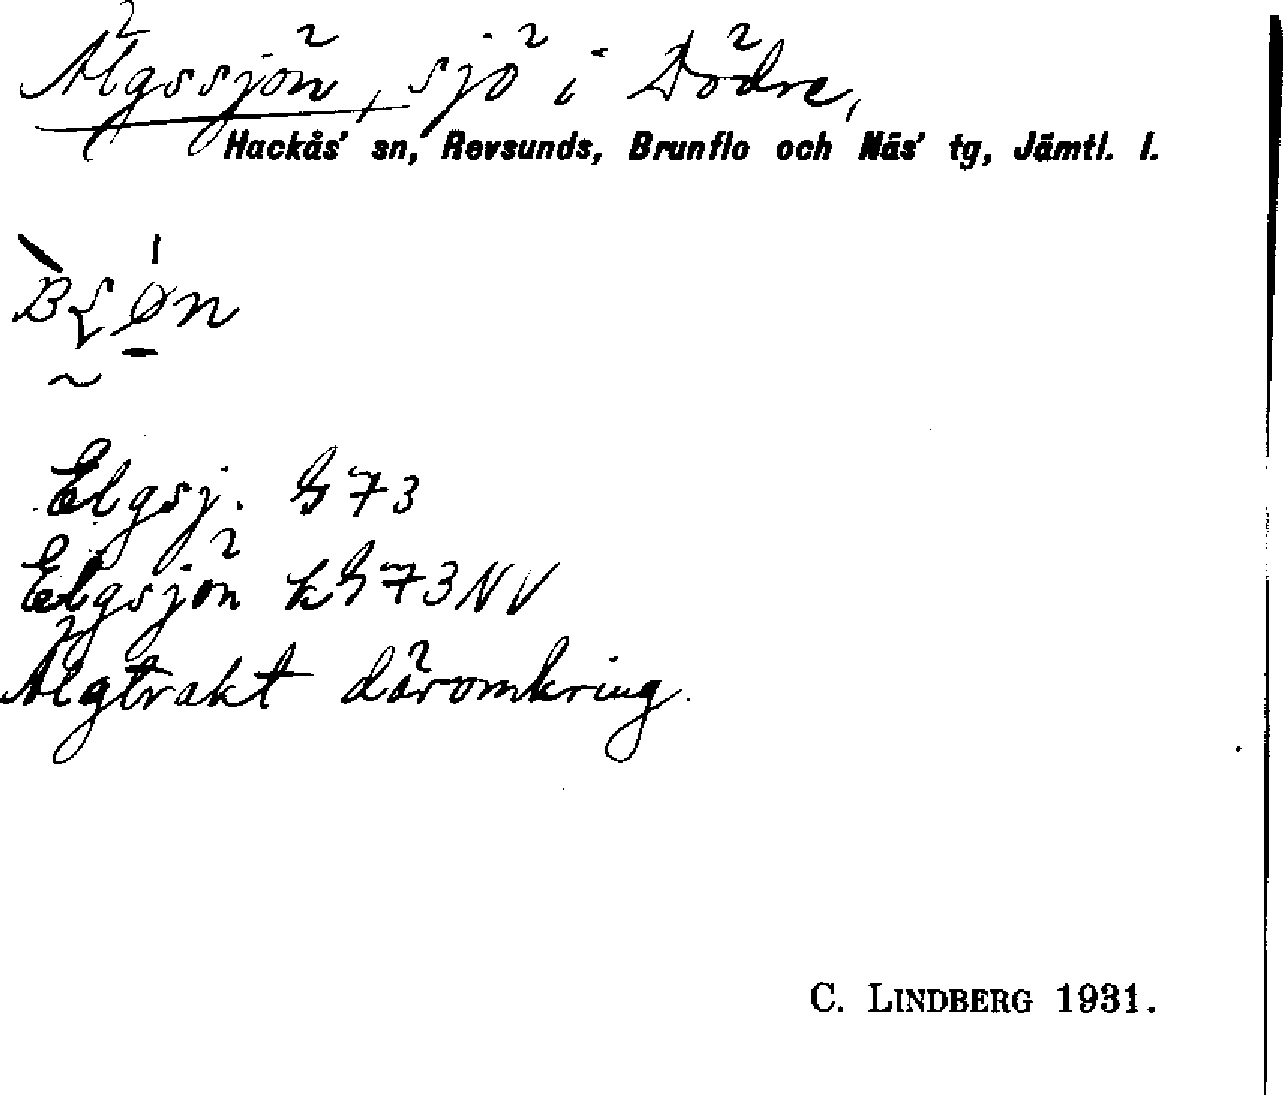 Älgssjön, sjö i Dödre,
Hackås' sn, Revsunds, Brunflo och Näs' tg, Jämtl. l.
Elgsj. G 73
Elgsjön kG73NV
Älgtrakt däromkring.
C. LINDBERG 1931.